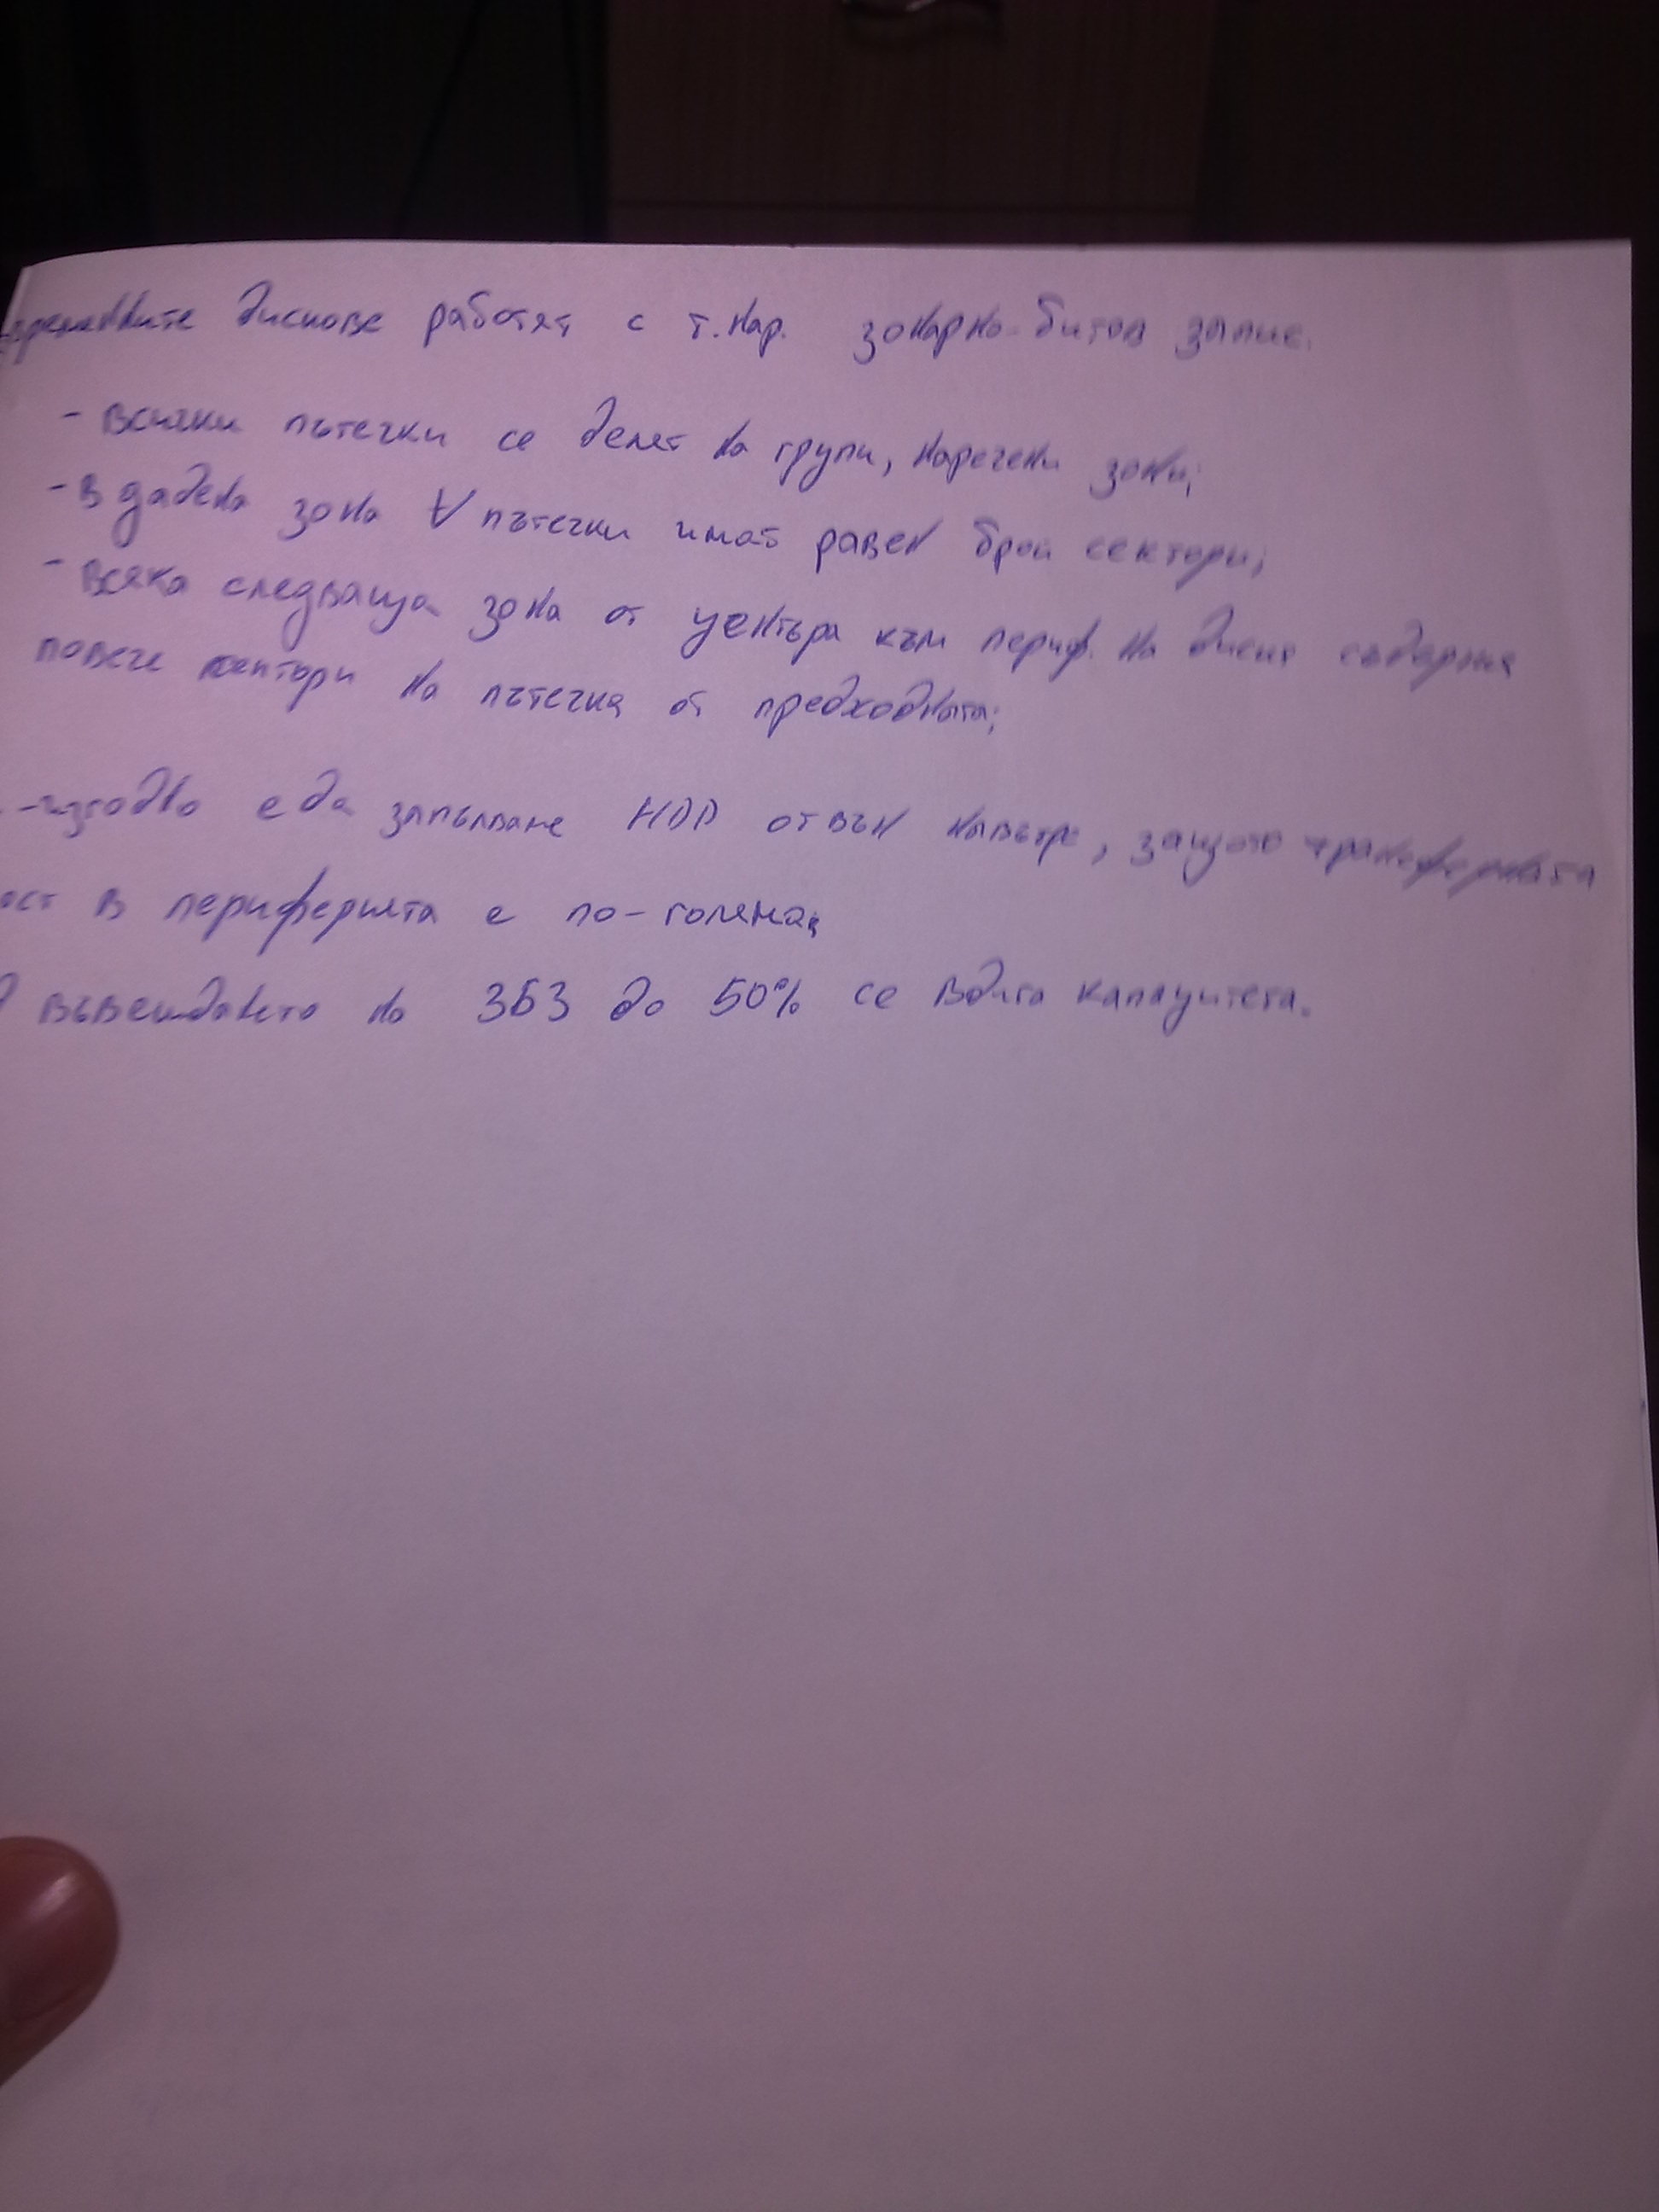 дисковe работят с т.нар. зонарно-битов запис.
- Всички пътечки се делят на групи, наречени зони;
- В дадена зона ∀ пътечки имат равен брой сектори;
- Всяка следваща зона от центъра към периф. на диска съдържа
повече сектори на пътечка от предходната;
-изгодно е да запълваме HDD отвън навътре, защото трансферната
ост в периферията е по-голяма;
въвеждането на ЗБЗ до 50% се вдига капацитета.